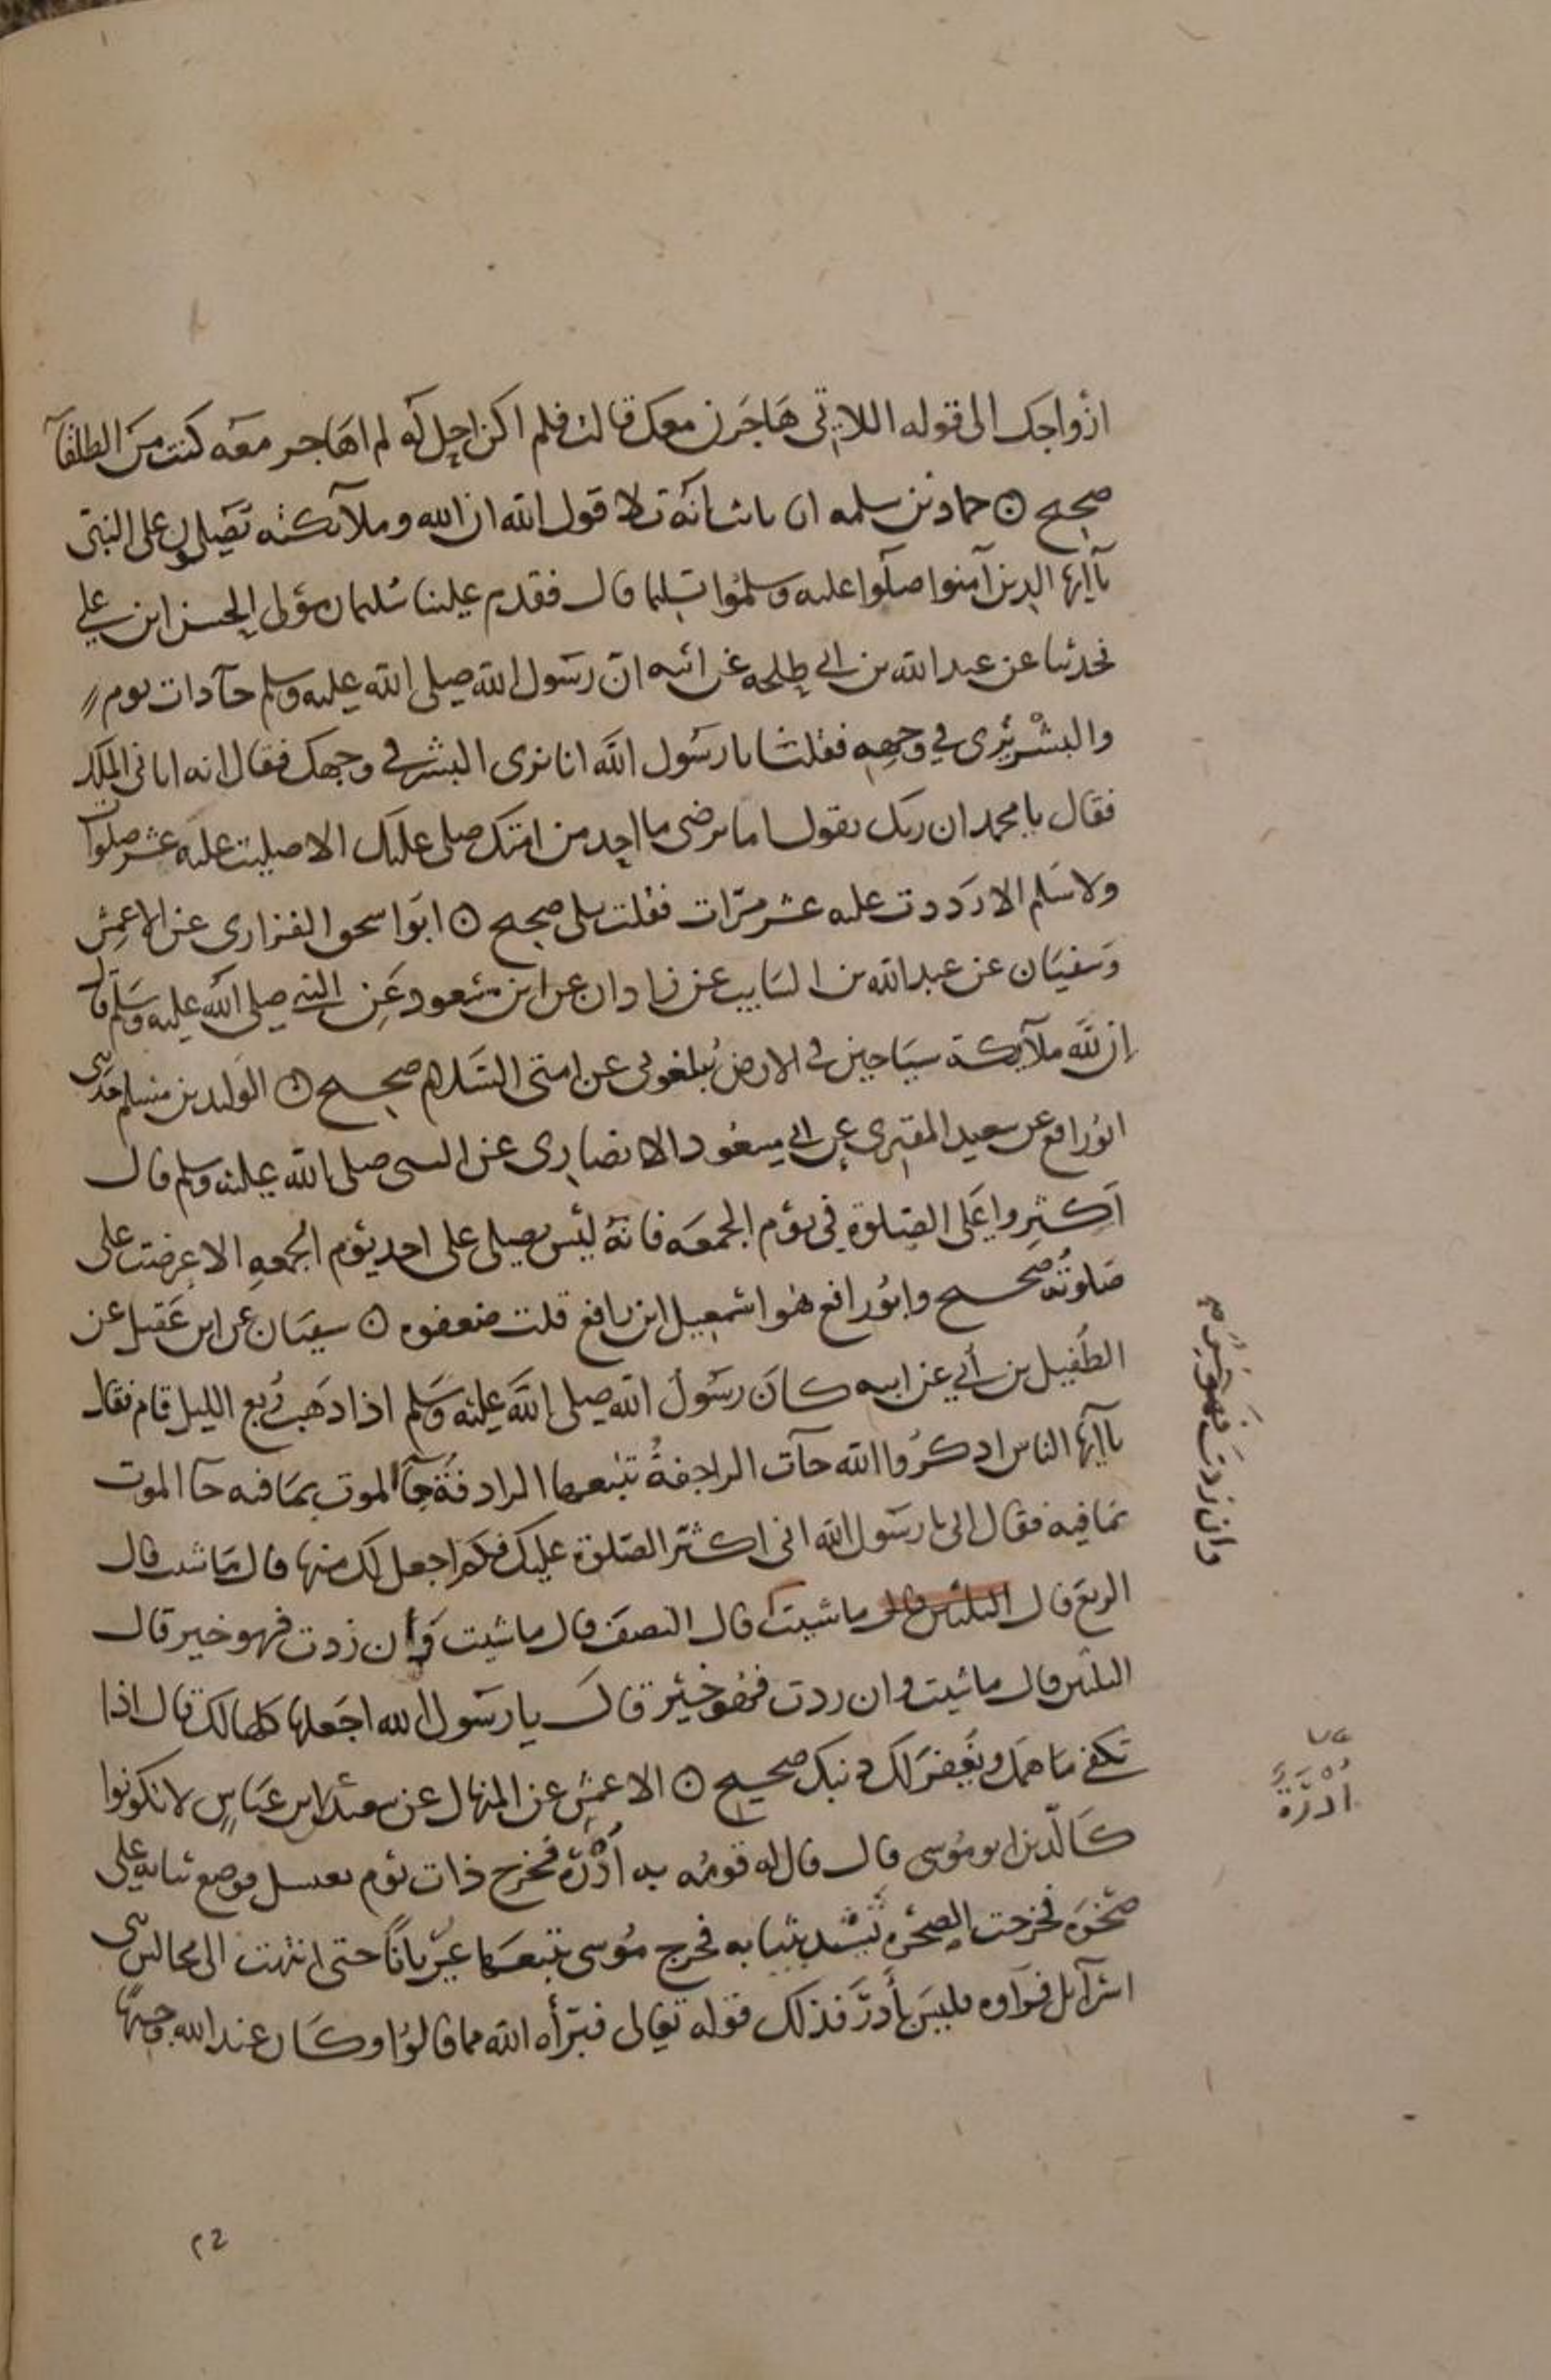 ازواجك الى قوله اللاتي هاجرن معك قالت فلم اكن احل له لم اهاجر معه كنت من الطلقآ
صحيح ۞ حماد بن سلمه انا ثابت انه تلا قول الله ان الله وملآئكته يصلون على النبي
يآايها الذين آمنوا صلوا عليه وسلموا تسليما قال فقدم علينا سليمان مولى الحسن ابن علي
فحدثنا عن عبد الله بن ابي طلحه عن ابيه ان رسول الله صلى الله عليه وسلم جآ ذات يوم
والبشر يرى في وجهه فقلنا يا رسول الله انا نرى البشر في وجهك فقال انه اتاني الملك
فقال يا محمد ان ربك يقول اما يرضى ما احد من امتك صلى عليك الا صليت عليه عشر صلوات
ولا سلم الا رددت عليه عشر مرات فقلت بلى صحيح ۞ ابوا سحق الفزاري عن الاعمش
وسفيان عن عبد الله بن السايب عن زاذان عن ابن مسعود عن النبي صلى الله عليه وسلم قال
ان لله ملآئكة سياحين في الارض يبلغوني عن امتي السلام صحيح ۞ الوليد بن مسلم حدثني
ابو رافع عن سعيد المقبري عن ابي مسعود الانصاري عن النبي صلى الله عليه وسلم قال
اكثروا علي الصلوة في يوم الجمعه فانه ليس يصلي علي احد يوم الجمعه الا عرضت علي
صلوته صحيح وابو رافع هو اسمعيل ابن رافع قلت ضعفوه ۞ سفيان عن ابن عقيل عن
الطفيل بن أبي عن ابيه كان رسول الله صلى الله عليه وسلم اذا ذهب ربع الليل قام فقال
يآايها الناس اذكروا الله جآت الراجفة تتبعها الرادفة جآ الموت بما فيه جآ الموت
بما فيه فقال ابي يا رسول الله اني اكثر الصلوة عليك فكم اجعل لك منها قال ما شيت قال
الربع قال الثلثين قال ما شيت قال النصف قال ما شيت وان زدت فهو خير قال
الثلثين قال ما شيت وان زدت فهو خير قال يا رسول الله اجعلها كلها لك قال اذا
تكفى ما همك ويغفر لك ذنبك صحيح ۞ الاعمش عن المنهال عن سعيد ابن عباس لا تكونوا
كالذين اذوا موسى قال قال له قومه به أدرة فخرج ذات يوم يغتسل فوضع ثيابه على
صخره فخرجت الصخره تشتد بثيابه فخرج موسى يتبعها عريانا حتى انتهت الى مجالس بني
اسرآئل فرآوه فليس بأدر فذلك قوله تعالى فبرأه الله مما قالوا وكان عند الله وجيها
وان زدت فهو خير م
أدرة